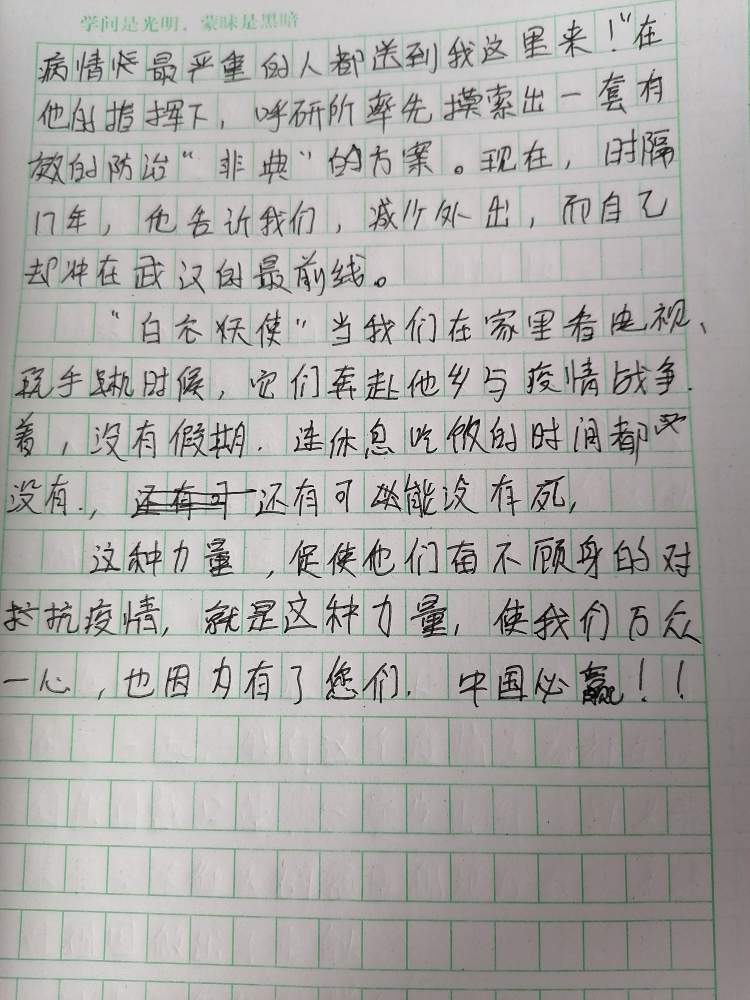 学问是光明，蒙昧是黑暗
病情最严重的人都送到我这里来！”在
他的指挥下，呼研所率先摸索出一套有
效的防治“非典”的方案。现在，时隔
17年，他告诉我们，减少外出，而自己
却冲在武汉的最前线。
“白衣天使”当我们在家里看电视、
玩手机时候，它们奔赴他乡与疫情战争
着，没有假期．连休息吃饭的时间都
没有．，还有可还有可能没有死，
这种力量，促使他们奋不顾身的对
抗疫情，就是这种力量，使我们万众
一心，也因为有了您们．中国必赢！！